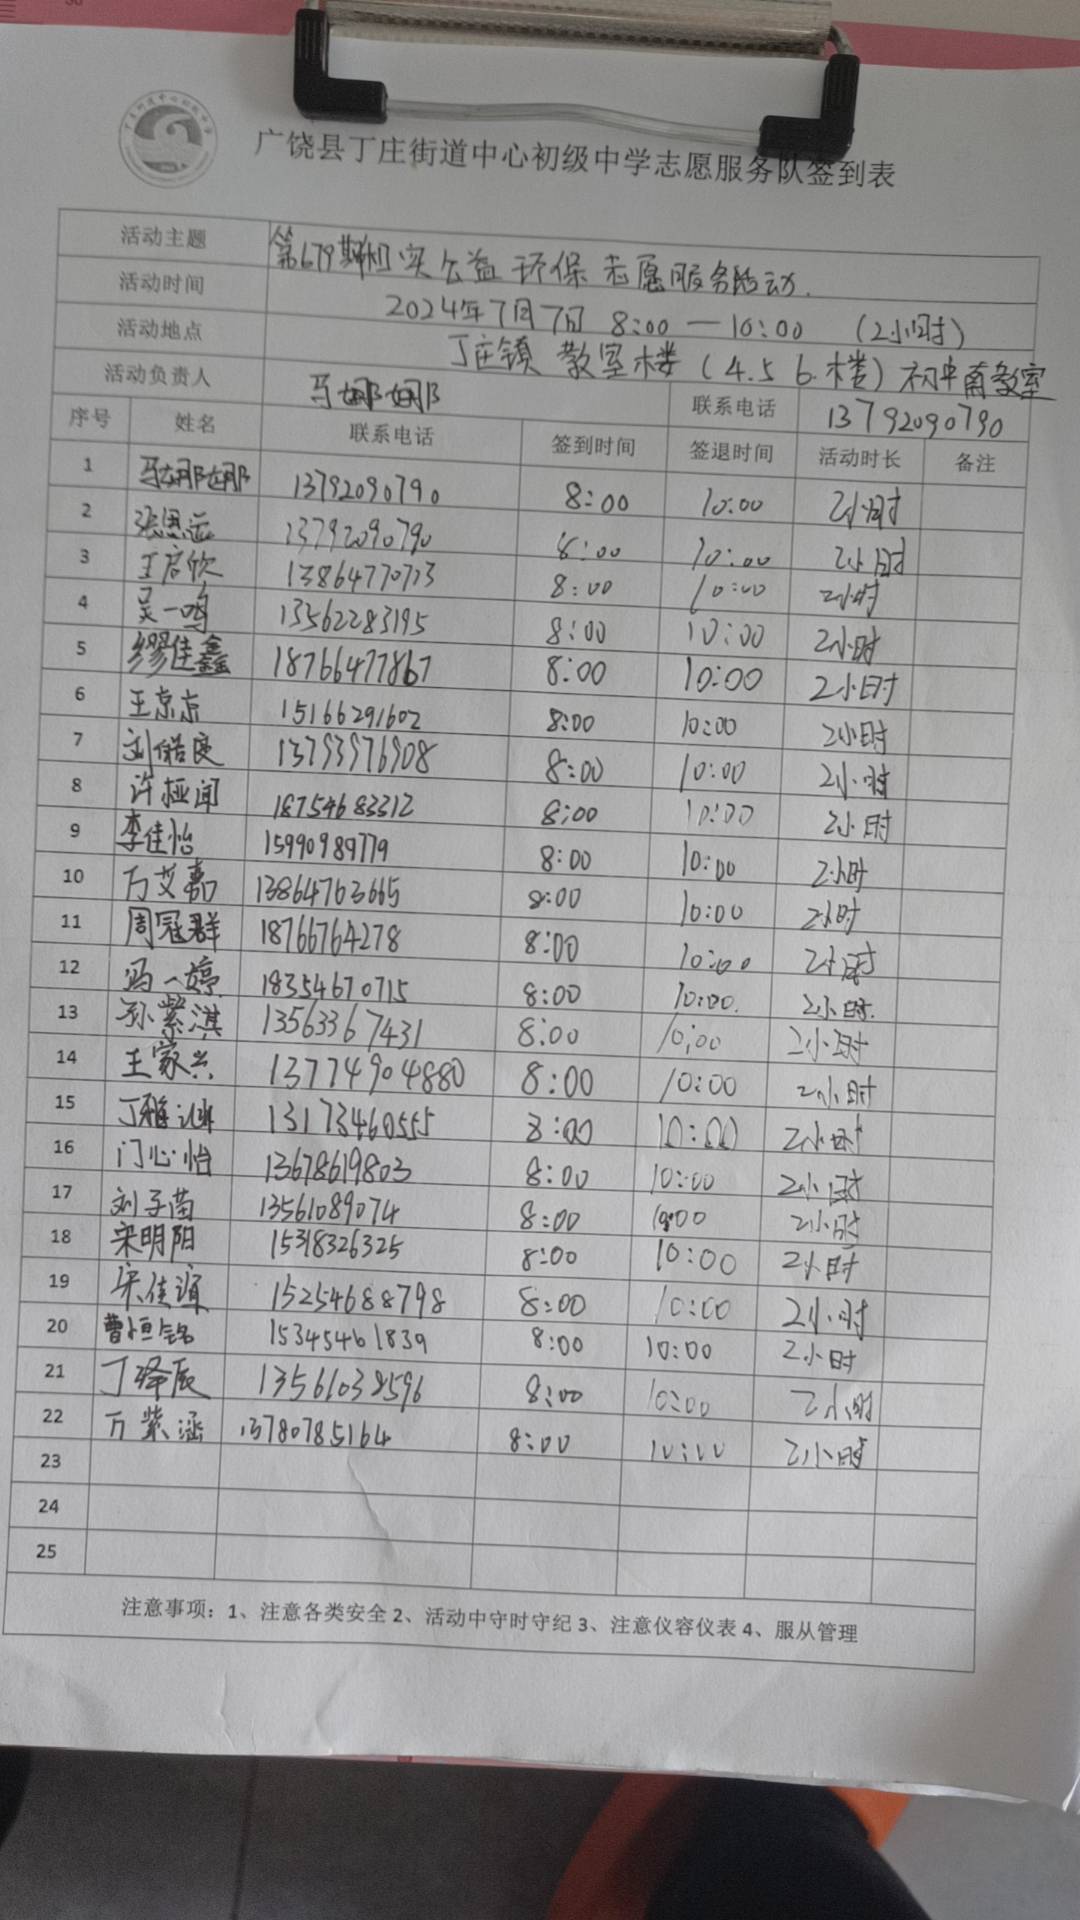 广饶县丁庄街道中心初级中学志愿服务队签到表
活动主题 第679期 公益环保志愿服务活动.
活动时间 2024年7月7日 8:00—10:00 (2小时)
活动地点 丁庄镇 教室楼(4.5 6.楼)初中南教室
活动负责人 马娜娜 联系电话 13792090790
序号 姓名 联系电话 签到时间 签退时间 活动时长 备注
1 马娜娜 13792090790 8:00 10:00 2小时
2 张恩远 13792090790 8:00 10:00 2小时
3 王启欣 13864770773 8:00 10:00 2小时
4 吴一鸣 13562283195 8:00 10:00 2小时
5 缪佳鑫 18766477867 8:00 10:00 2小时
6 王京京 15166291602 8:00 10:00 2小时
7 刘皓良 13793976908 8:00 10:00 2小时
8 许桠闻 18754683312 8:00 10:00 2小时
9 李佳怡 15990989779 8:00 10:00 2小时
10 万艾嘉 13864763665 8:00 10:00 2小时
11 周冠群 18766764278 8:00 10:00 2小时
12 冯一婷 18354670715 8:00 10:00. 2小时.
13 孙紫淇 13563367431 8:00 10:00 2小时
14 王家兴 13774904880 8:00 10:00 2小时
15 丁雅 13173460555 8:00 10:00 2小时
16 门心怡 13678619803 8:00 10:00 2小时
17 刘子茵 13561089074 8:00 10:00 2小时
18 宋明阳 15318326325 8:00 10:00 2小时
19 宋佳谊 15254688798 8:00 10:00 2小时
20 曹恒铭 15345461839 8:00 10:00 2小时
21 丁泽辰 13561038596 8:00 10:00 2小时
22 万紫涵 13780785164 8:00 10:00 2小时
23
24
25
注意事项：1、注意各类安全 2、活动中守时守纪 3、注意仪容仪表 4、服从管理